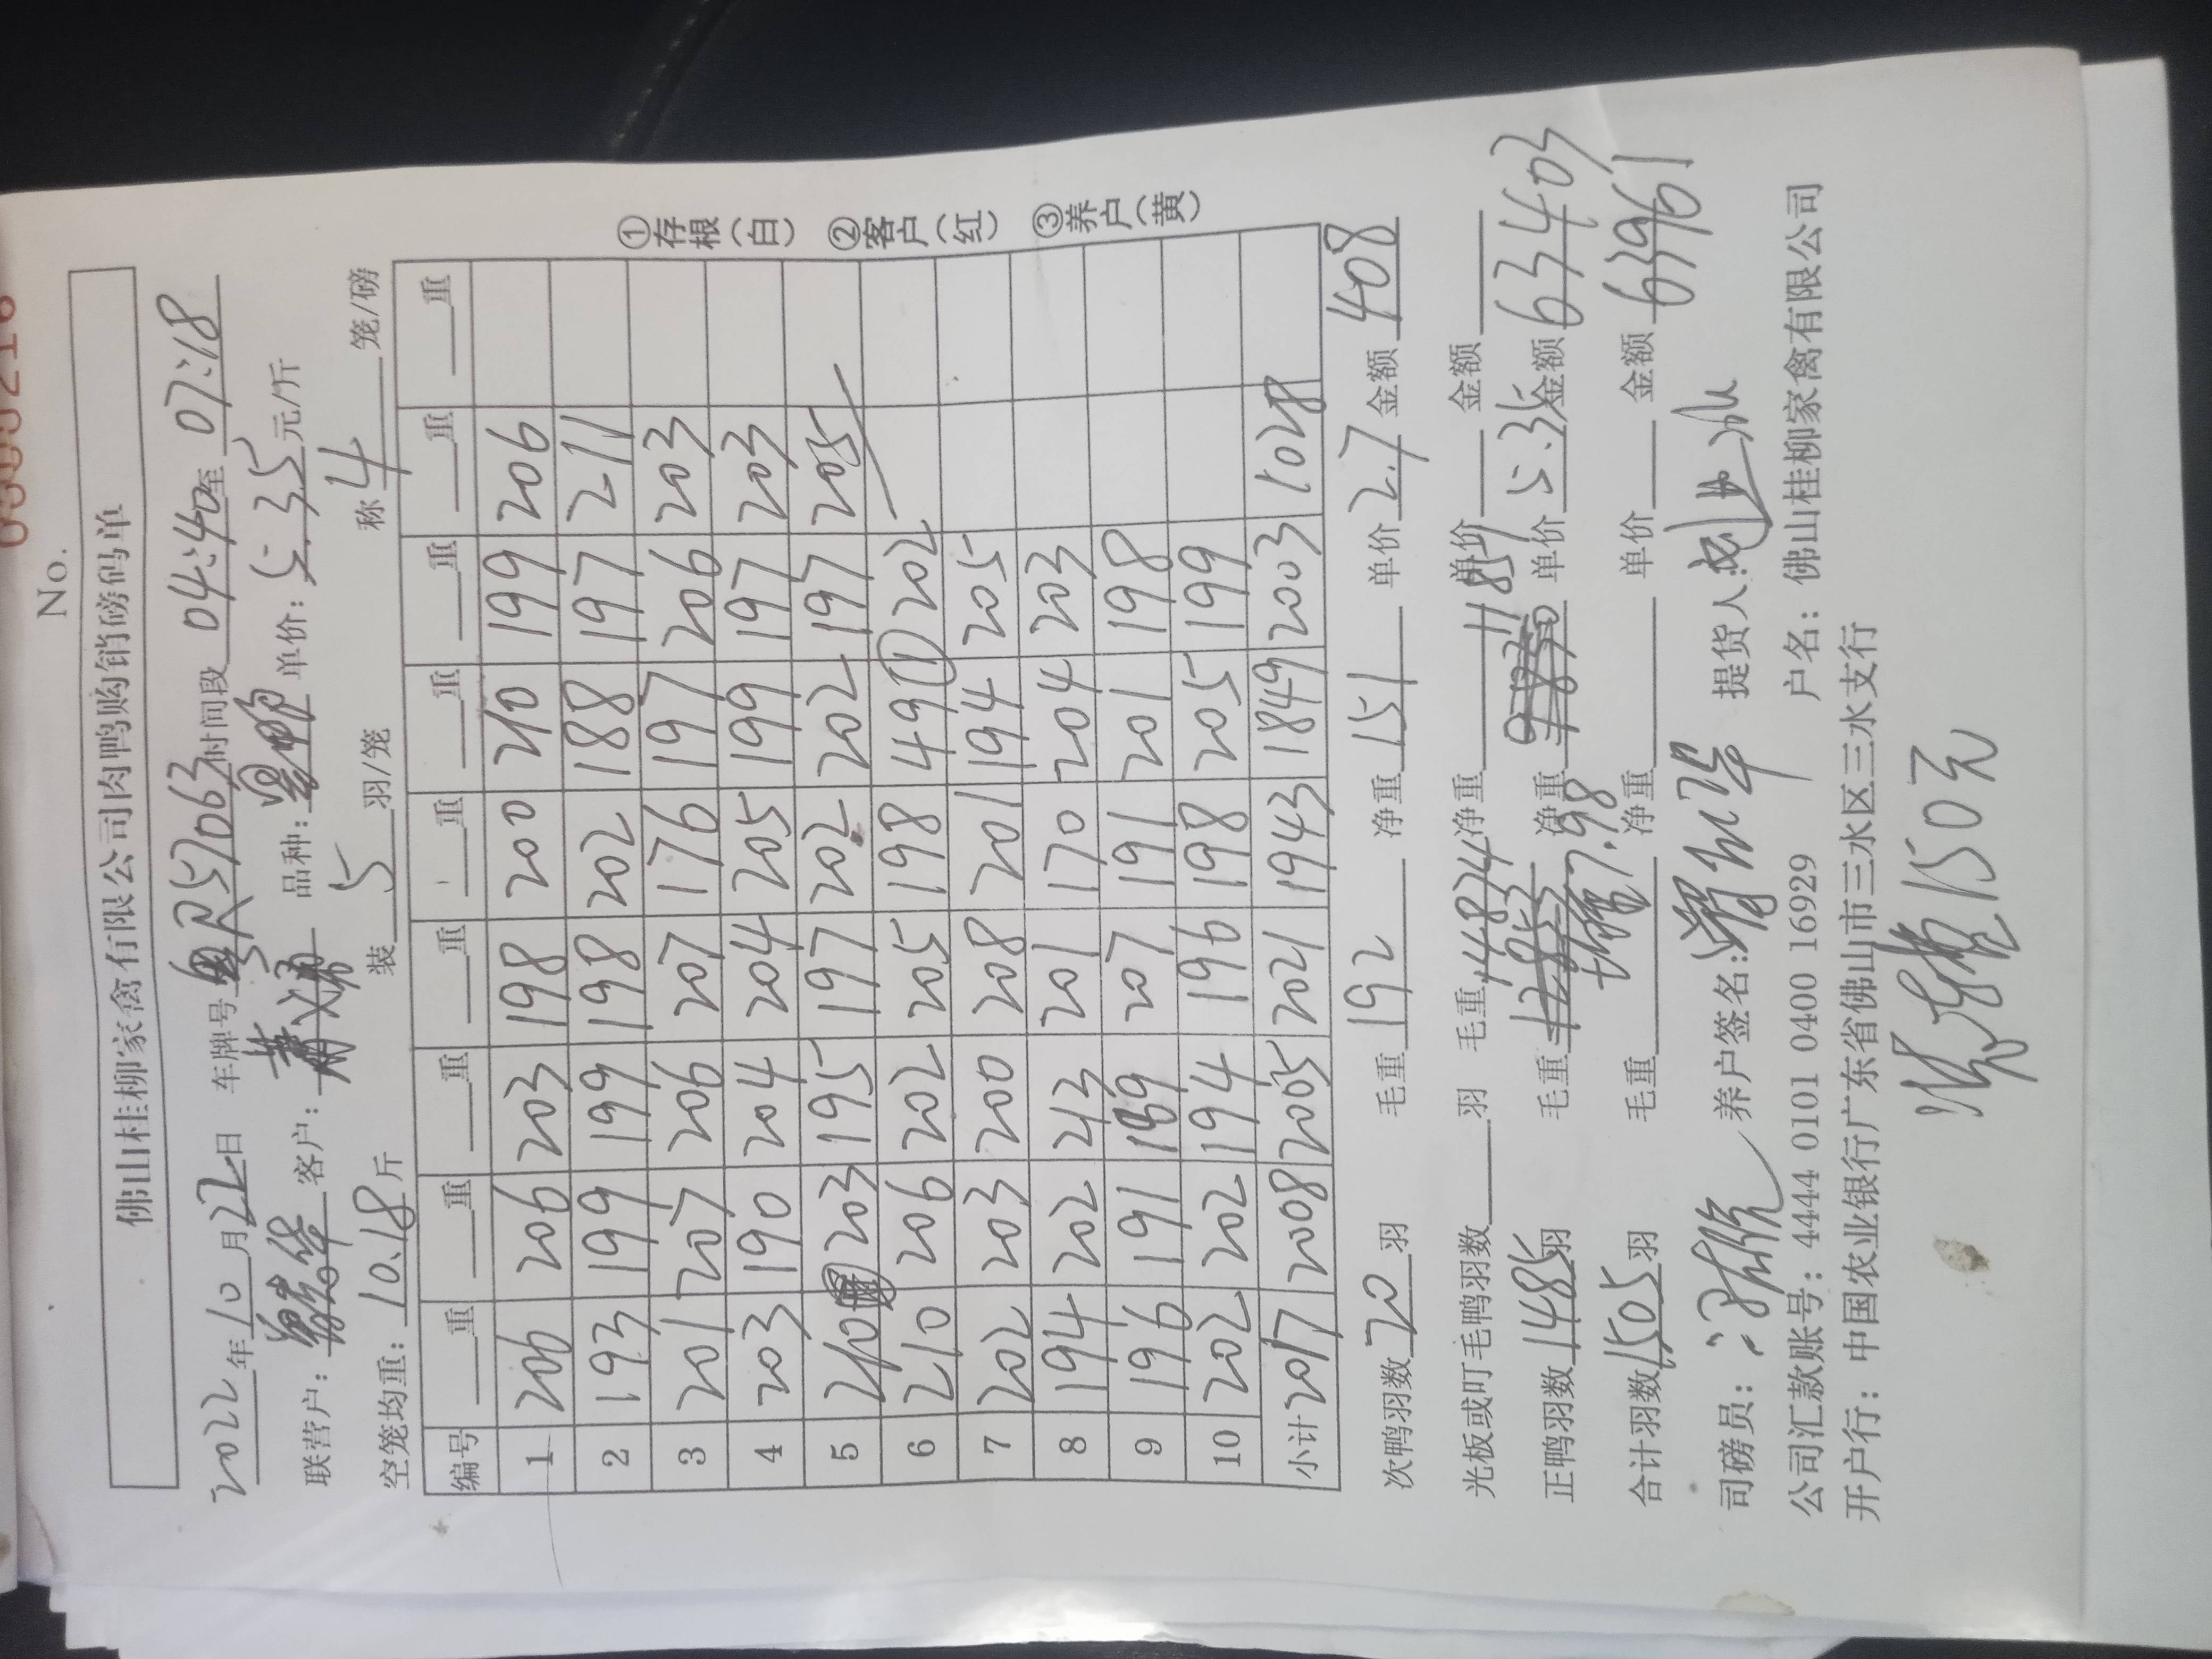 No.
佛山桂柳家禽有限公司肉鸭购销磅码单
2022年10月22日 车牌号粤R57063时间段04:40至07:18
联营户: 客户: 品种: 单价:5.35元/斤
空笼均重:10.18斤 装5羽/笼 称4笼/磅
编号 重 重 重 重 重 重 重 重 重
1 206 206 203 198 200 210 199 206
2 193 199 199 198 202 188 197 211
3 201 207 206 207 176 197 206 203
4 203 190 204 204 205 199 197 203
5 210 203 195 197 202 202 197 205
6 210 206 202 205 198 49① 202
7 202 203 200 208 201 194 205
8 194 202 213 201 170 204 203
9 196 191 189 207 191 201 198
10 202 202 194 196 198 205 199
小计 2017 2008 2005 2021 1943 1849 2003 1028
①存根(白) ②客户(红) ③养户(黄)
次鸭羽数20羽 毛重192 净重151 单价2.7金额408
光板或叮毛鸭羽数 羽 毛重14874净重 单价 金额
正鸭羽数1485羽 毛重 净重 单价5.35金额63403
合计羽数1505羽 毛重 净重 单价 金额63961
司磅员: 养户签名: 提货人:
公司汇款账号:4444 0101 0400 16929 户名:佛山桂柳家禽有限公司
开户行:中国农业银行广东省佛山市三水区三水支行
150元